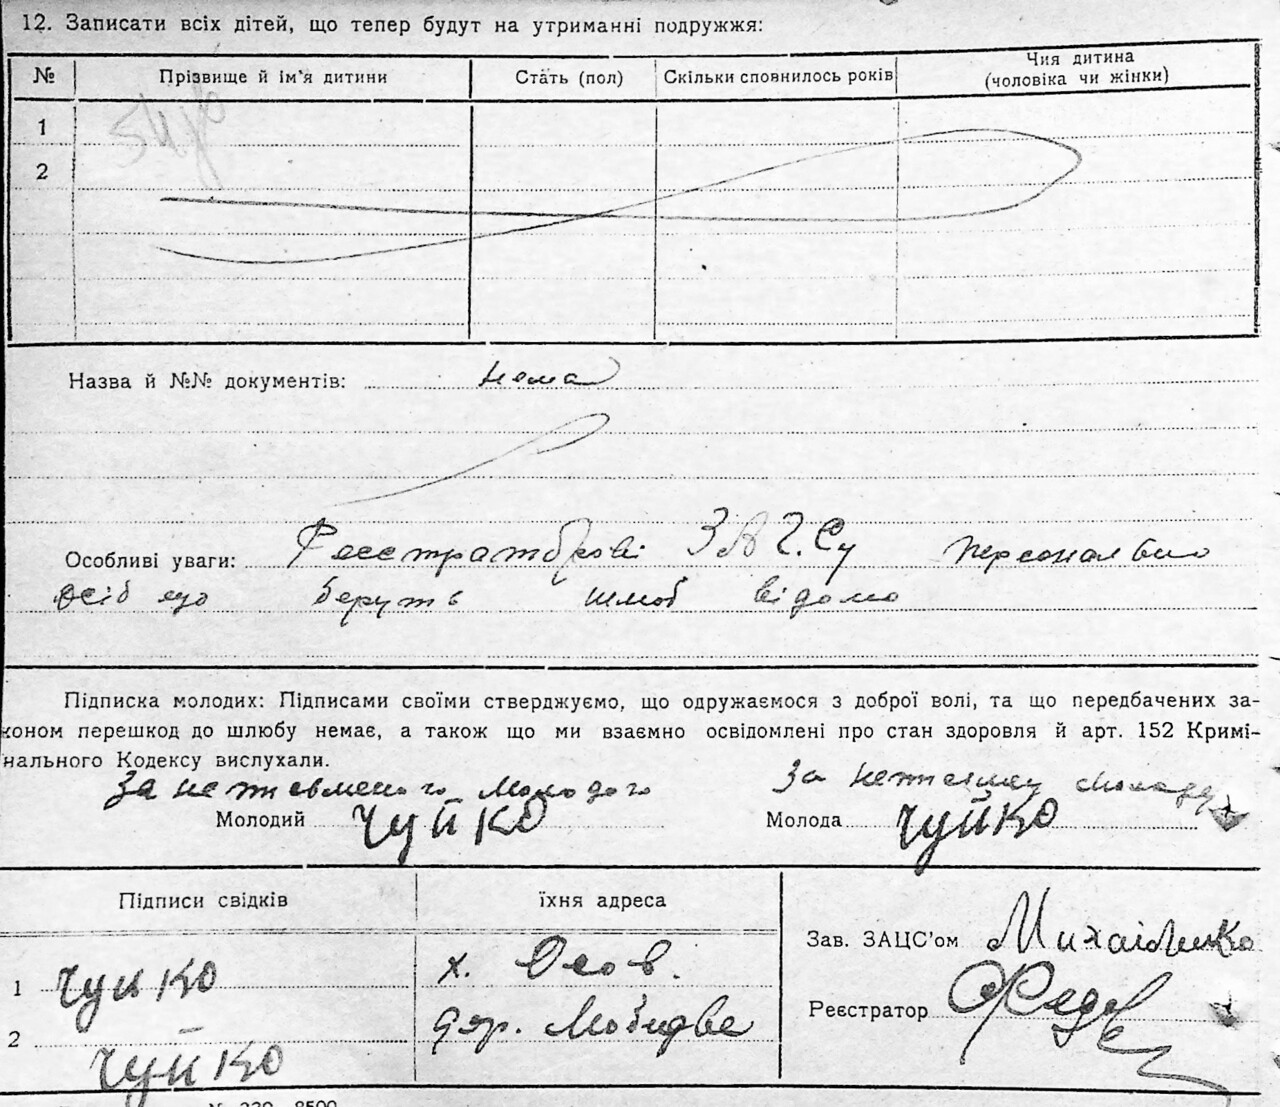 12. Записати всіх дітей, що тепер будут на утриманні подружжя:
№ Прізвище й ім'я дитини Стать (пол) Скільки сповнилось років Чия дитина
(чоловіка чи жінки)
1
2
Назва й №№ документів: нема
Особливі уваги: Реєстраторові ЗАГ.Су персонально
осіб що беруть шлюб відомо
Підписка молодих: Підписами своїми стверджуємо, що одружаємося з доброї волі, та що передбачених за-
коном перешкод до шлюбу немає, а також що ми взаємно освідомлені про стан здоровля й арт. 152 Кримі-
нального Кодексу вислухали.
За неписьменого молодого За неписьмену молоду
Молодий Чуйко Молода Чуйко
Підписи свідків їхня адреса
Зав. ЗАЦС'ом Михайленко
1 Чуйко х.
Реєстратор
2 Чуйко
№ 8500